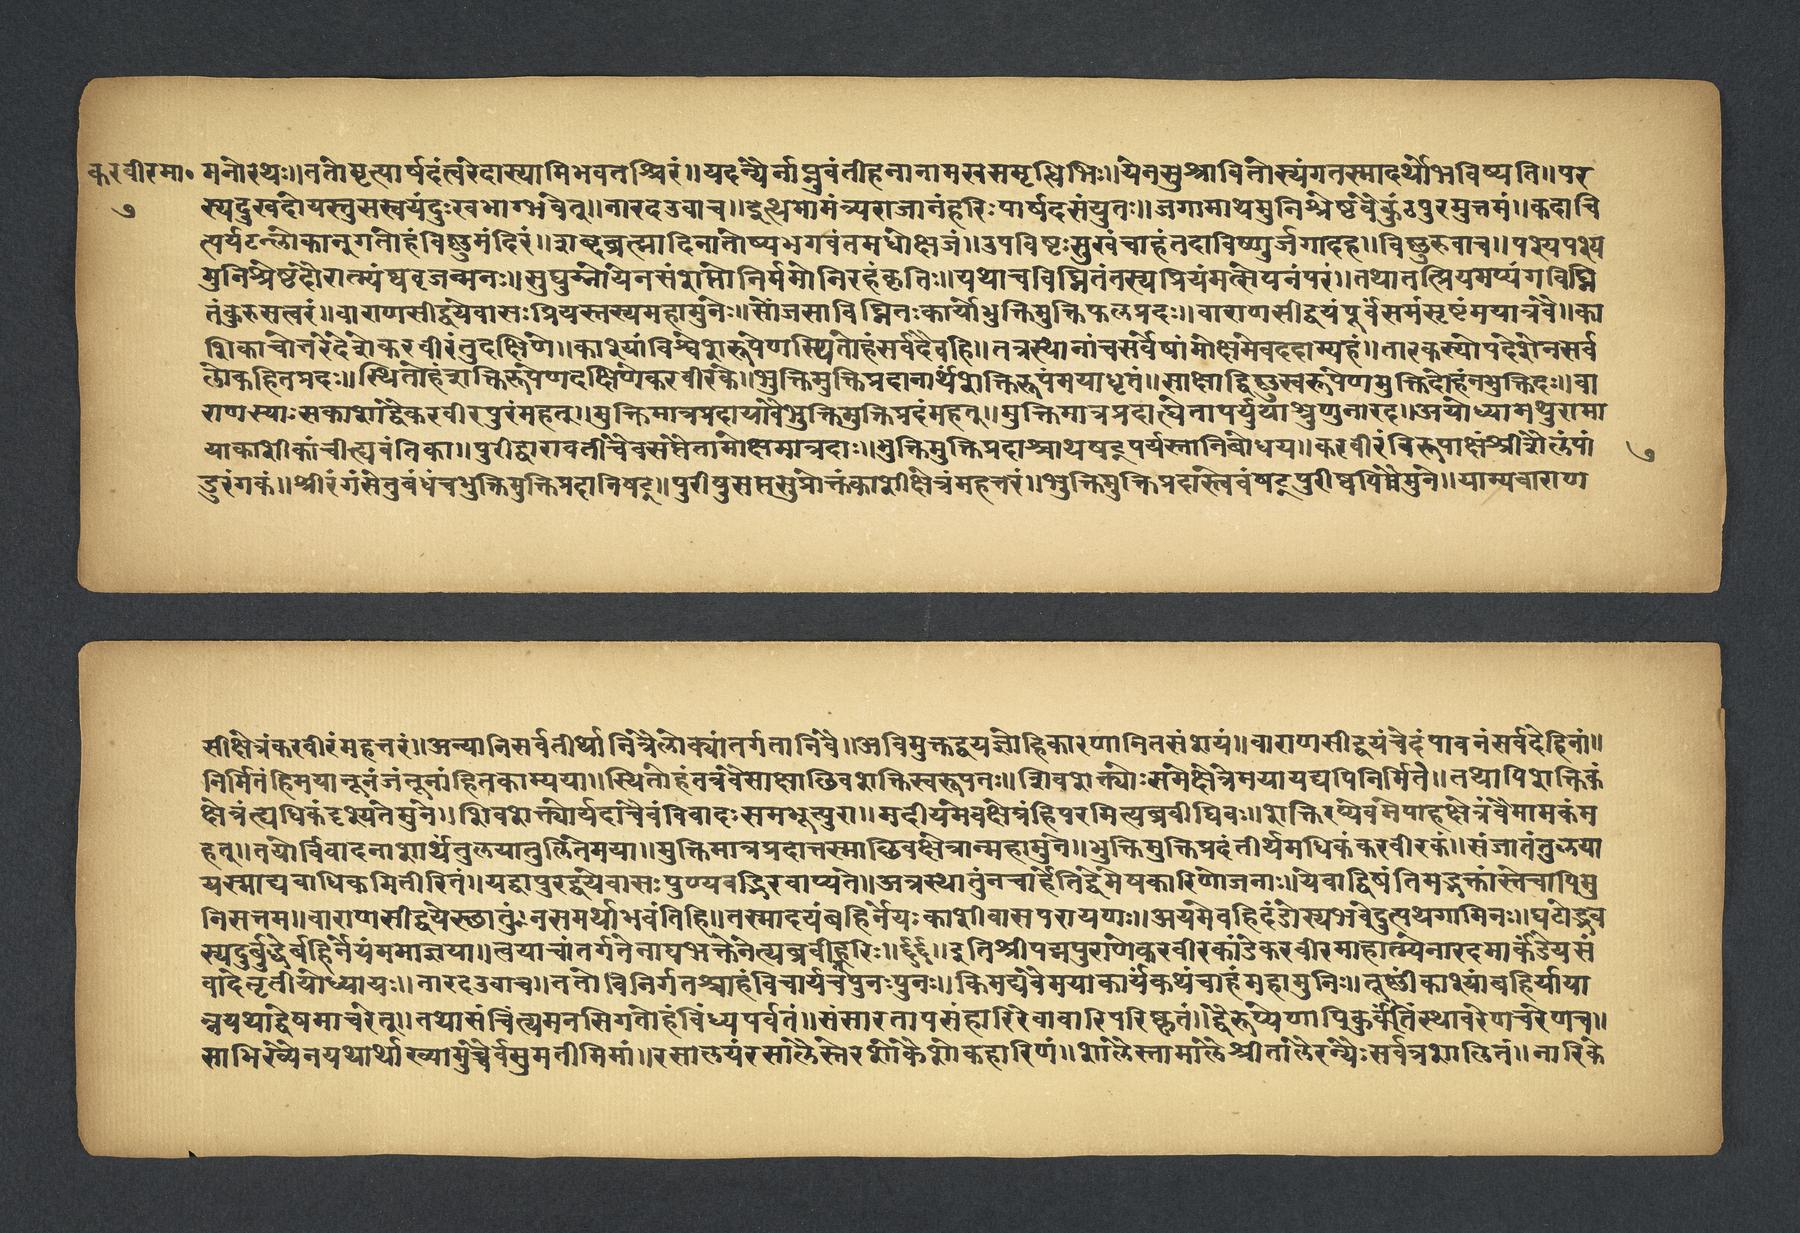 करवीरमा॰
७
मनोरथः॥ततोमृत्पार्षदंत्वरेदास्यामिभवतश्चिरं॥यदन्यैर्नाप्नुवंतीहनानामखसमृद्धिभिः॥येनसुश्रावितोस्यंगतस्मादर्थोभविष्यति॥पर
स्यदुखदोयस्तुसस्वयंदुःखभाग्भवेत्॥नारदउवाच॥इत्थमामंत्र्यराजानंहरिःपार्षदसंयुतः॥जगामाथमुनिश्रेष्ठंवैकुंठपुरमुत्तमं॥कदाचि
त्पर्यटन्लोकानुगतोहंविष्णुमंदिरं॥ भगवंतमधोक्षजं॥उपविष्टःसुखंचाहंतदाविष्णुर्जगादह॥विष्णुरुवाच॥पश्यपश्य
मुनिश्रेष्ठदौरात्म्यं ॥सुघुम्नोयेनसंशप्तोनिर्ममोनिरहंकृतिः॥यथाचविघ्नितंतस्यप्रियंमत्सेपनंपरं॥तथातत्प्रियमप्यंगविघ्नि
तंकुरुसत्वरं॥वाराणसीद्वयेवासःप्रियस्तस्यमहामुनेः॥सोंजसाविघ्नितःकार्योभुक्तिमुक्तिफलप्रदः॥वाराणसीद्वयंपूर्वंसमंसृष्टंमयात्रवै॥का
शिकाचोत्तरेदेशेकरवीरंतुदक्षिणे॥काश्यांविश्वेशरूपेणस्थितोहंसर्वदैवहि॥तत्रस्थानांचसर्वेषांमोक्षमेवददाम्यहं॥तारकस्योपदेशेनसर्व
लोकहितप्रदः॥स्थितोहंशक्तिरूपेणदक्षिणेकरवीरके॥भुक्तिमुक्तिप्रदानार्थंशक्तिरूपंमयाधृतं॥साक्षाद्विष्णुस्वरूपेणमुक्तिदोहंनभुक्तिदः॥वा
राणस्याःसकाशाद्वैकरवीरपुरंमहत्॥मुक्तिमात्रप्रदायावैभुक्तिमुक्तिप्रदंमहत्॥मुक्तिमात्रप्रदात्वेतापर्युयथाश्रुणुनारद॥अयोध्यामथुरामा
याकाशीकांचीत्यवंतिका॥पुरीद्वारावतीचैवसप्तैतामोक्षमात्रदाः॥भुक्तिमुक्तिप्रदाश्चाथषट्पर्यस्तानिबोधय॥करवीरंविरूपाक्षंश्रीशैलंपां
डुरंगकं॥श्रीरंगंसेतुबंधंचभुक्तिमुक्तिप्रदानिषट्॥पुरीषुसप्तसुप्रोक्तंकाशीक्षेत्रंमहत्तरं॥भुक्तिमुक्तिप्रदास्वेवंषट्पुरीष्वपिवैमुने॥याम्यवाराण
७
सीक्षेत्रंकरवीरंमहत्तरं॥अन्यानिसर्वतीर्थानित्रैलोक्यांतर्गतानिवै॥अविमुक्तद्वयज्ञोहिकारणानितसंशयं॥वाराणसीद्वयंचेदंपावनंसर्वदेहिनां॥
निर्मितंहिमयानूनंजंतूनांहितकाम्यया॥स्थितोहंतत्रवैसाक्षाच्छिवशक्तिस्वरूपतः॥शिवशक्त्योःसमेक्षेत्रेमयायद्यपिनिर्मिते॥तथापिशक्तिकं
क्षेत्रंत्यधिकंदृश्यतेमुने॥शिवशक्त्योर्यदाचैवंविवादःसमभूत्पुरा॥मदीयमेवक्षेत्रंहिपरमित्यब्रवीघिवः॥शक्तिरप्येवमेवाहक्षेत्रंवैमामकंम
हत्॥तयोर्विवादनाशार्थंतुलयातुलितेमया॥मुक्तिमात्रप्रदात्तस्माच्छिवक्षेत्रान्महामुने॥भुक्तिमुक्तिप्रदंतीर्थमधिकंकरवीरकं॥संजातंतुलया
यस्माद्यवाधिकमितीरितं॥यद्वापुरद्वयेवासःपुण्यवद्भिरवाप्यते॥अत्रस्थातुंनचार्हंतिद्वेषकारिणोजनाः॥येवाद्विषंतिमद्भक्तांस्तेचापिमु
निसत्तम॥वाराणसीद्वयेस्छातुंनसमर्थाभवंतिहि॥तस्मादयंबहिर्नेयःकाशीवासपरायणः॥अयमेवहिदंडोस्यभवेदुत्पथगामिनः॥घटोद्भव
स्यदुर्बुद्धेर्बहिर्नेयंममाज्ञया॥त्वयाचांतर्गतेनाघभक्तेनेत्यब्रवीद्धरिः॥ ॥इतिश्रीपद्मपुराणेकरवीरकांडेकरवीरमाहात्म्येनारदमार्कंडेयसं
वादेतृतीयोध्यायः॥नारदउवाच॥ततोविनिर्गतश्चाहंविचार्यचपुनःपुनः॥किमद्यवैमयाकार्यंकथंचाहंमहामुनिः॥तूष्णींकाश्यांबहिर्याया
न्नयथाद्वेषमाचरेत्॥तथासंचिंत्यमनसिगतोहंविंध्यपर्वतं॥संसारतापसंहारिरेवावारिपरिष्कृतं॥द्वैरूप्येणापिकुर्वंतिस्थावरेणचरेणच॥
साभिरव्येनयथार्थाख्यामुच्चैर्वसुमतीमिमां॥रसालयंरसालैस्तैरशोकैःशोकहारिणं॥शालैस्तामालैश्रीतालैरन्यैःसर्वत्रशालिनं॥नारिके